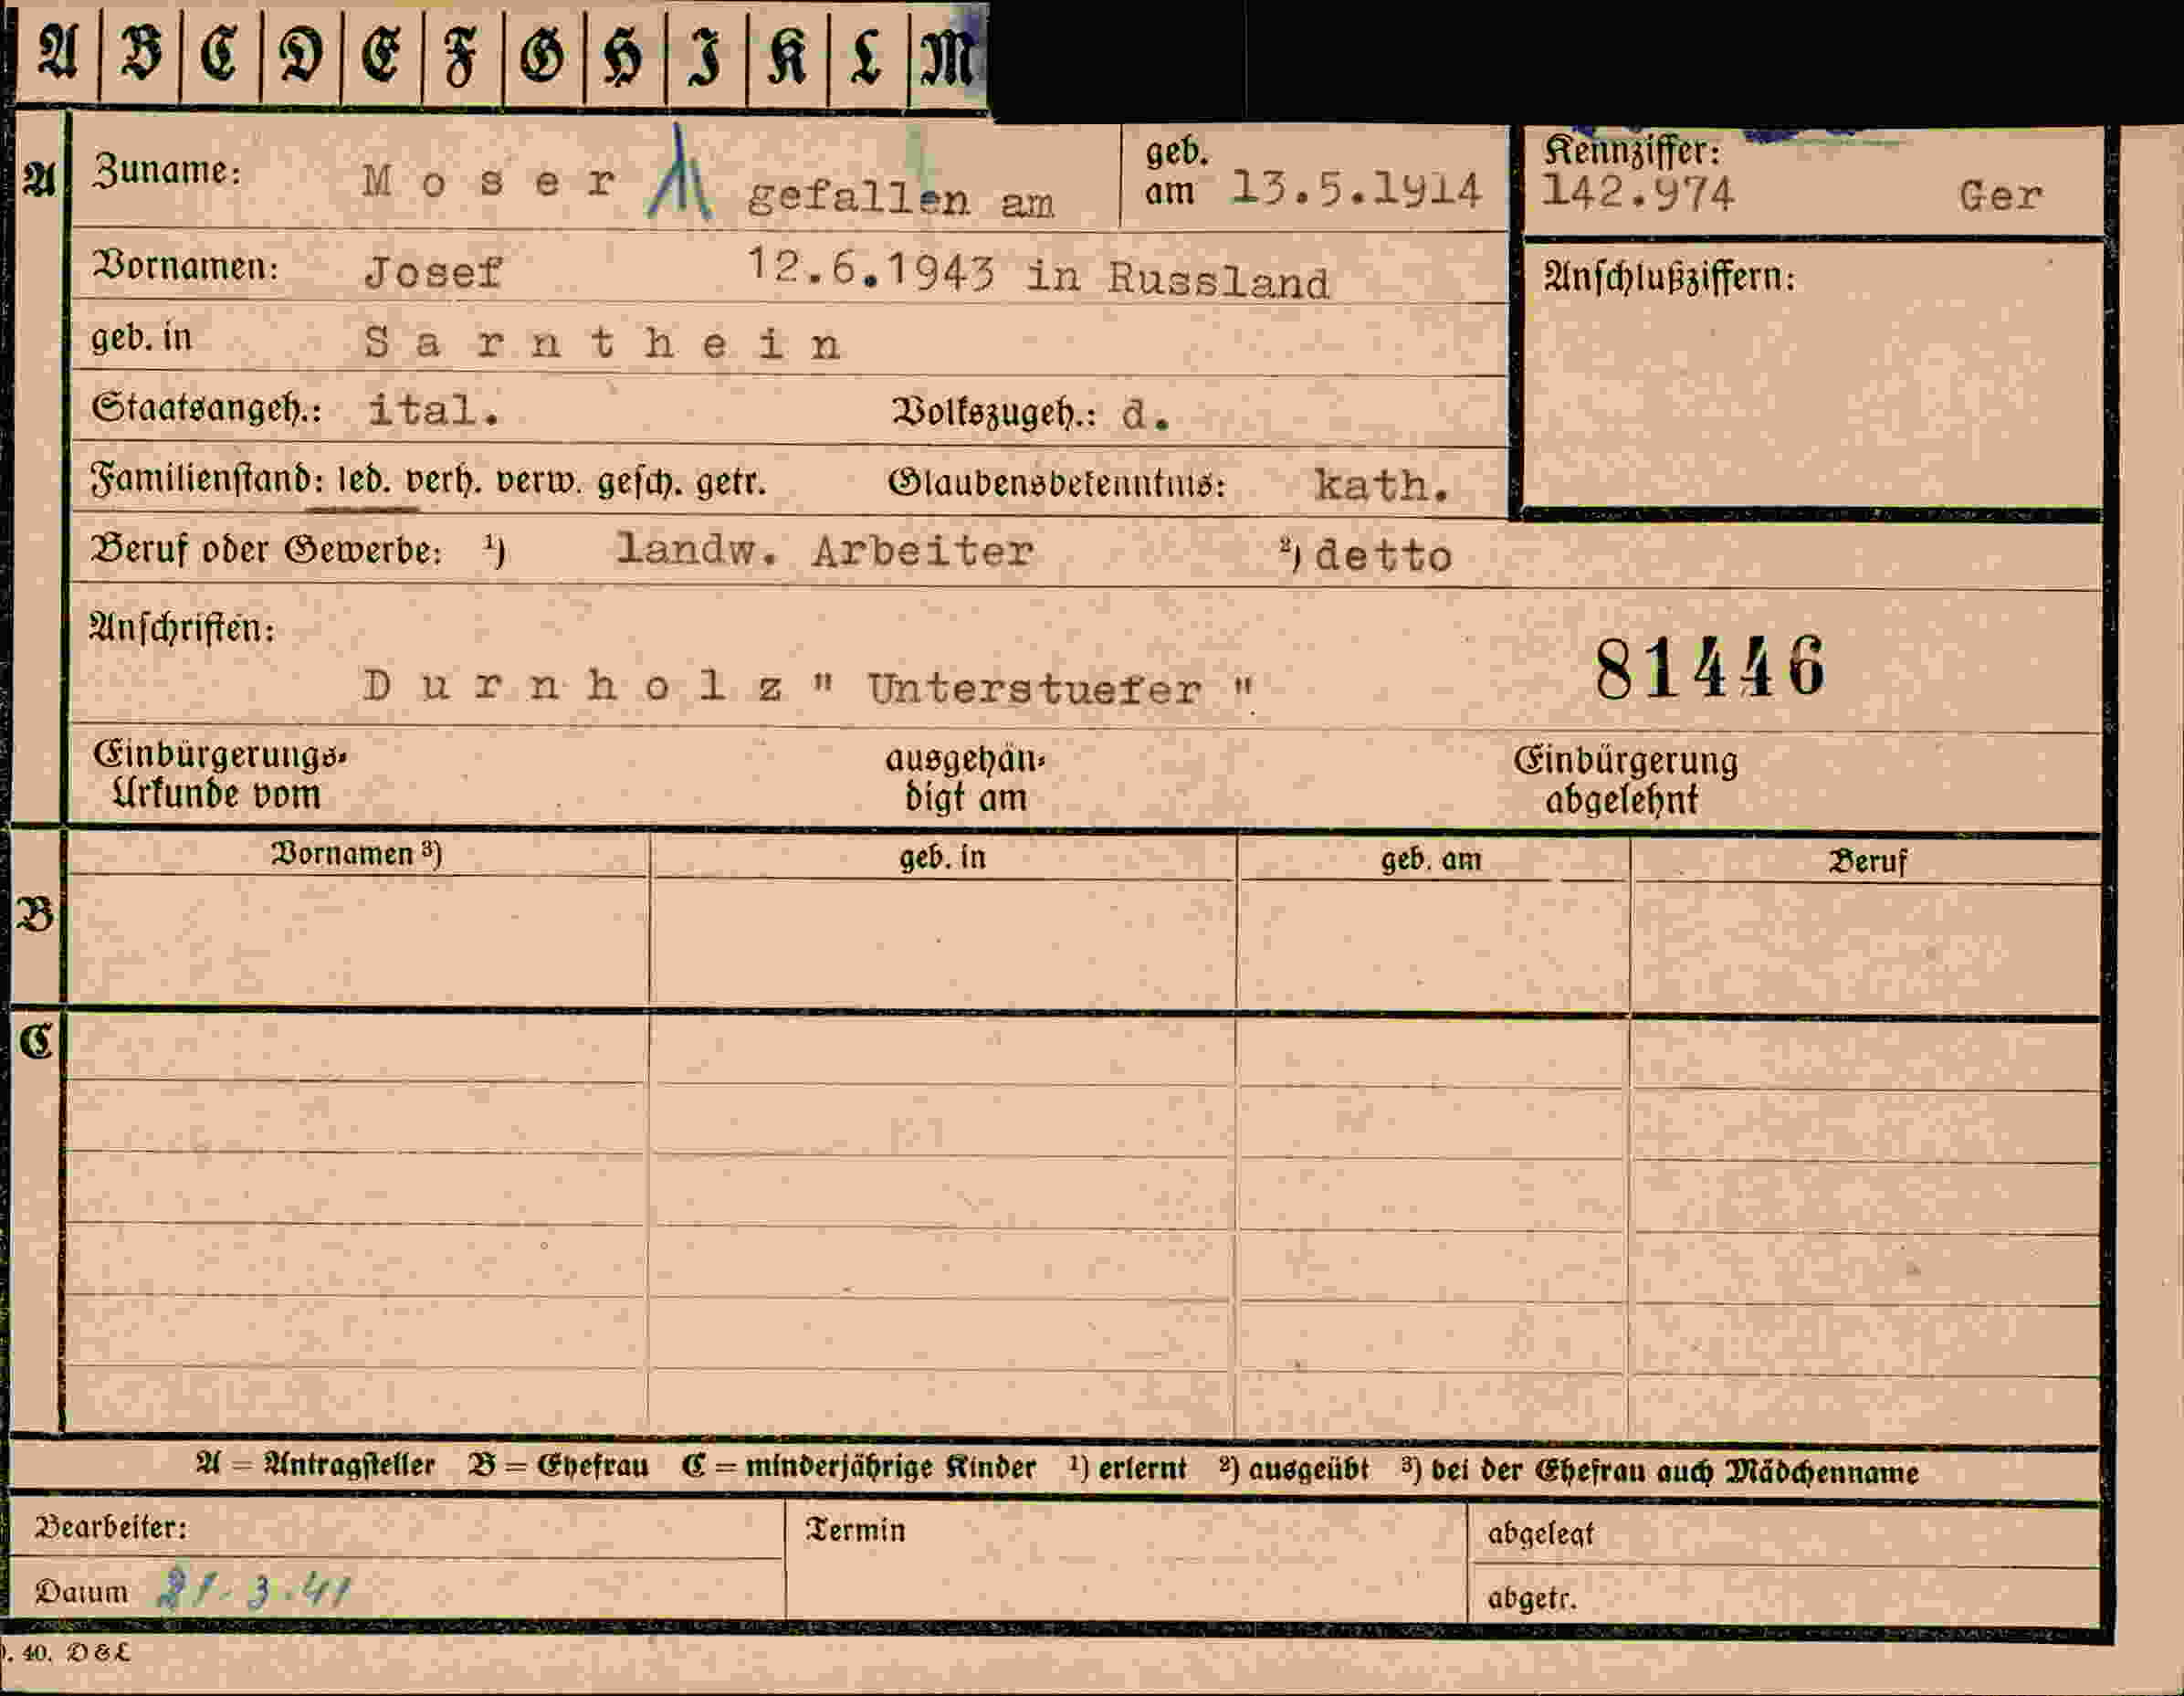 A B C D E F G H I K L M
A Zuname: Moser gefallen am geb. am 13.5.1914 Kennziffer: 142.974 Ger
Vornamen: Josef 12.6.1943 in Russland Anschlußziffern:
geb. in Sarnthein
Staatsangeh.: ital. Volkszugeh.: d.
Familienstand: led. verh. verw. gesch. getr. Glaubensbekenntnis: kath.
Beruf oder Gewerbe: ¹) landw. Arbeiter ²) detto
Anschriften:
81446
Durnholz " Unterstuefer "
Einbürgerungs- ausgehän- Einbürgerung
Urkunde vom digt am abgelehnt
Vornamen ³) geb. in geb. am Beruf
B
C
A = Antragsteller B = Ehefrau C = minderjährige Kinder ¹) erlernt ²) ausgeübt ³) bei der Ehefrau auch Mädchenname
Bearbeiter: Termin abgelegt
Datum 21.3.41 abgetr.
40. D & L